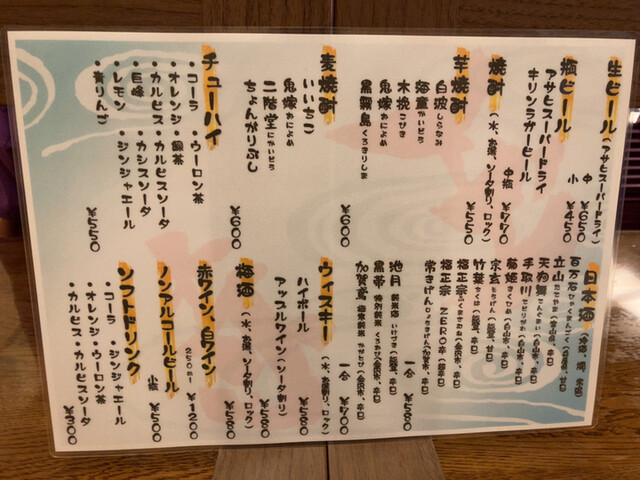 生ビール（アサヒスーパードライ）
中 ¥650
小 ¥450
瓶ビール
アサヒスーパードライ
キリンラガービール
中瓶 ¥770
焼酎（水、お湯、ソーダ割り、ロック）
¥550
芋焼酎
白波 しらなみ
海童 かいどう
木挽 こびき
鬼嫁 およめ
黒霧島 くろきりしま
¥600
麦焼酎
いいちこ
鬼嫁 およめ
二階堂 にかいどう
ちょんがりぶし
¥600
チューハイ
・コーラ ・ウーロン茶
・オレンジ ・緑茶
・カルピス ・カルピスソーダ
・巨峰 ・カシスソーダ
・レモン ・ジンジャエール
・青りんご
¥550
日本酒（冷酒、燗、常温）
百万石 ひゃくまんごく（白山市、甘口）
立山 たてやま（富山県、辛口）
天狗舞 てんぐまい（白山市、辛口）
手取川 てどりがわ（白山市、辛口）
菊姫 きくひめ（白山市、辛口）
宗玄 そうげん（能登、甘口）
竹葉 ちくは（能登、辛口）
福正宗 ふくまさむね（金沢市、辛口）
福正宗 ZERO辛（超辛口）
常きげん じょうきげん（加賀市、辛口）
一合 ¥580
池月 純米酒 いけづき（能登、辛口）
黒帯 特別純米 くろおび（金沢市、辛口）
加賀鳶 極寒純米 かがとび（金沢市、辛口）
一合 ¥700
ウィスキー（水、お湯割り、ロック）
¥580
ハイボール
アップルワイン（ソーダ割り）
¥580
梅酒（水、お湯、ソーダ割り、ロック）
¥580
赤ワイン、白ワイン
250ml ¥1200
ノンアルコールビール
小瓶 ¥500
ソフトドリンク
・コーラ ・ジンジャエール
・オレンジ ・ウーロン茶
・カルピス ・カルピスソーダ
¥300